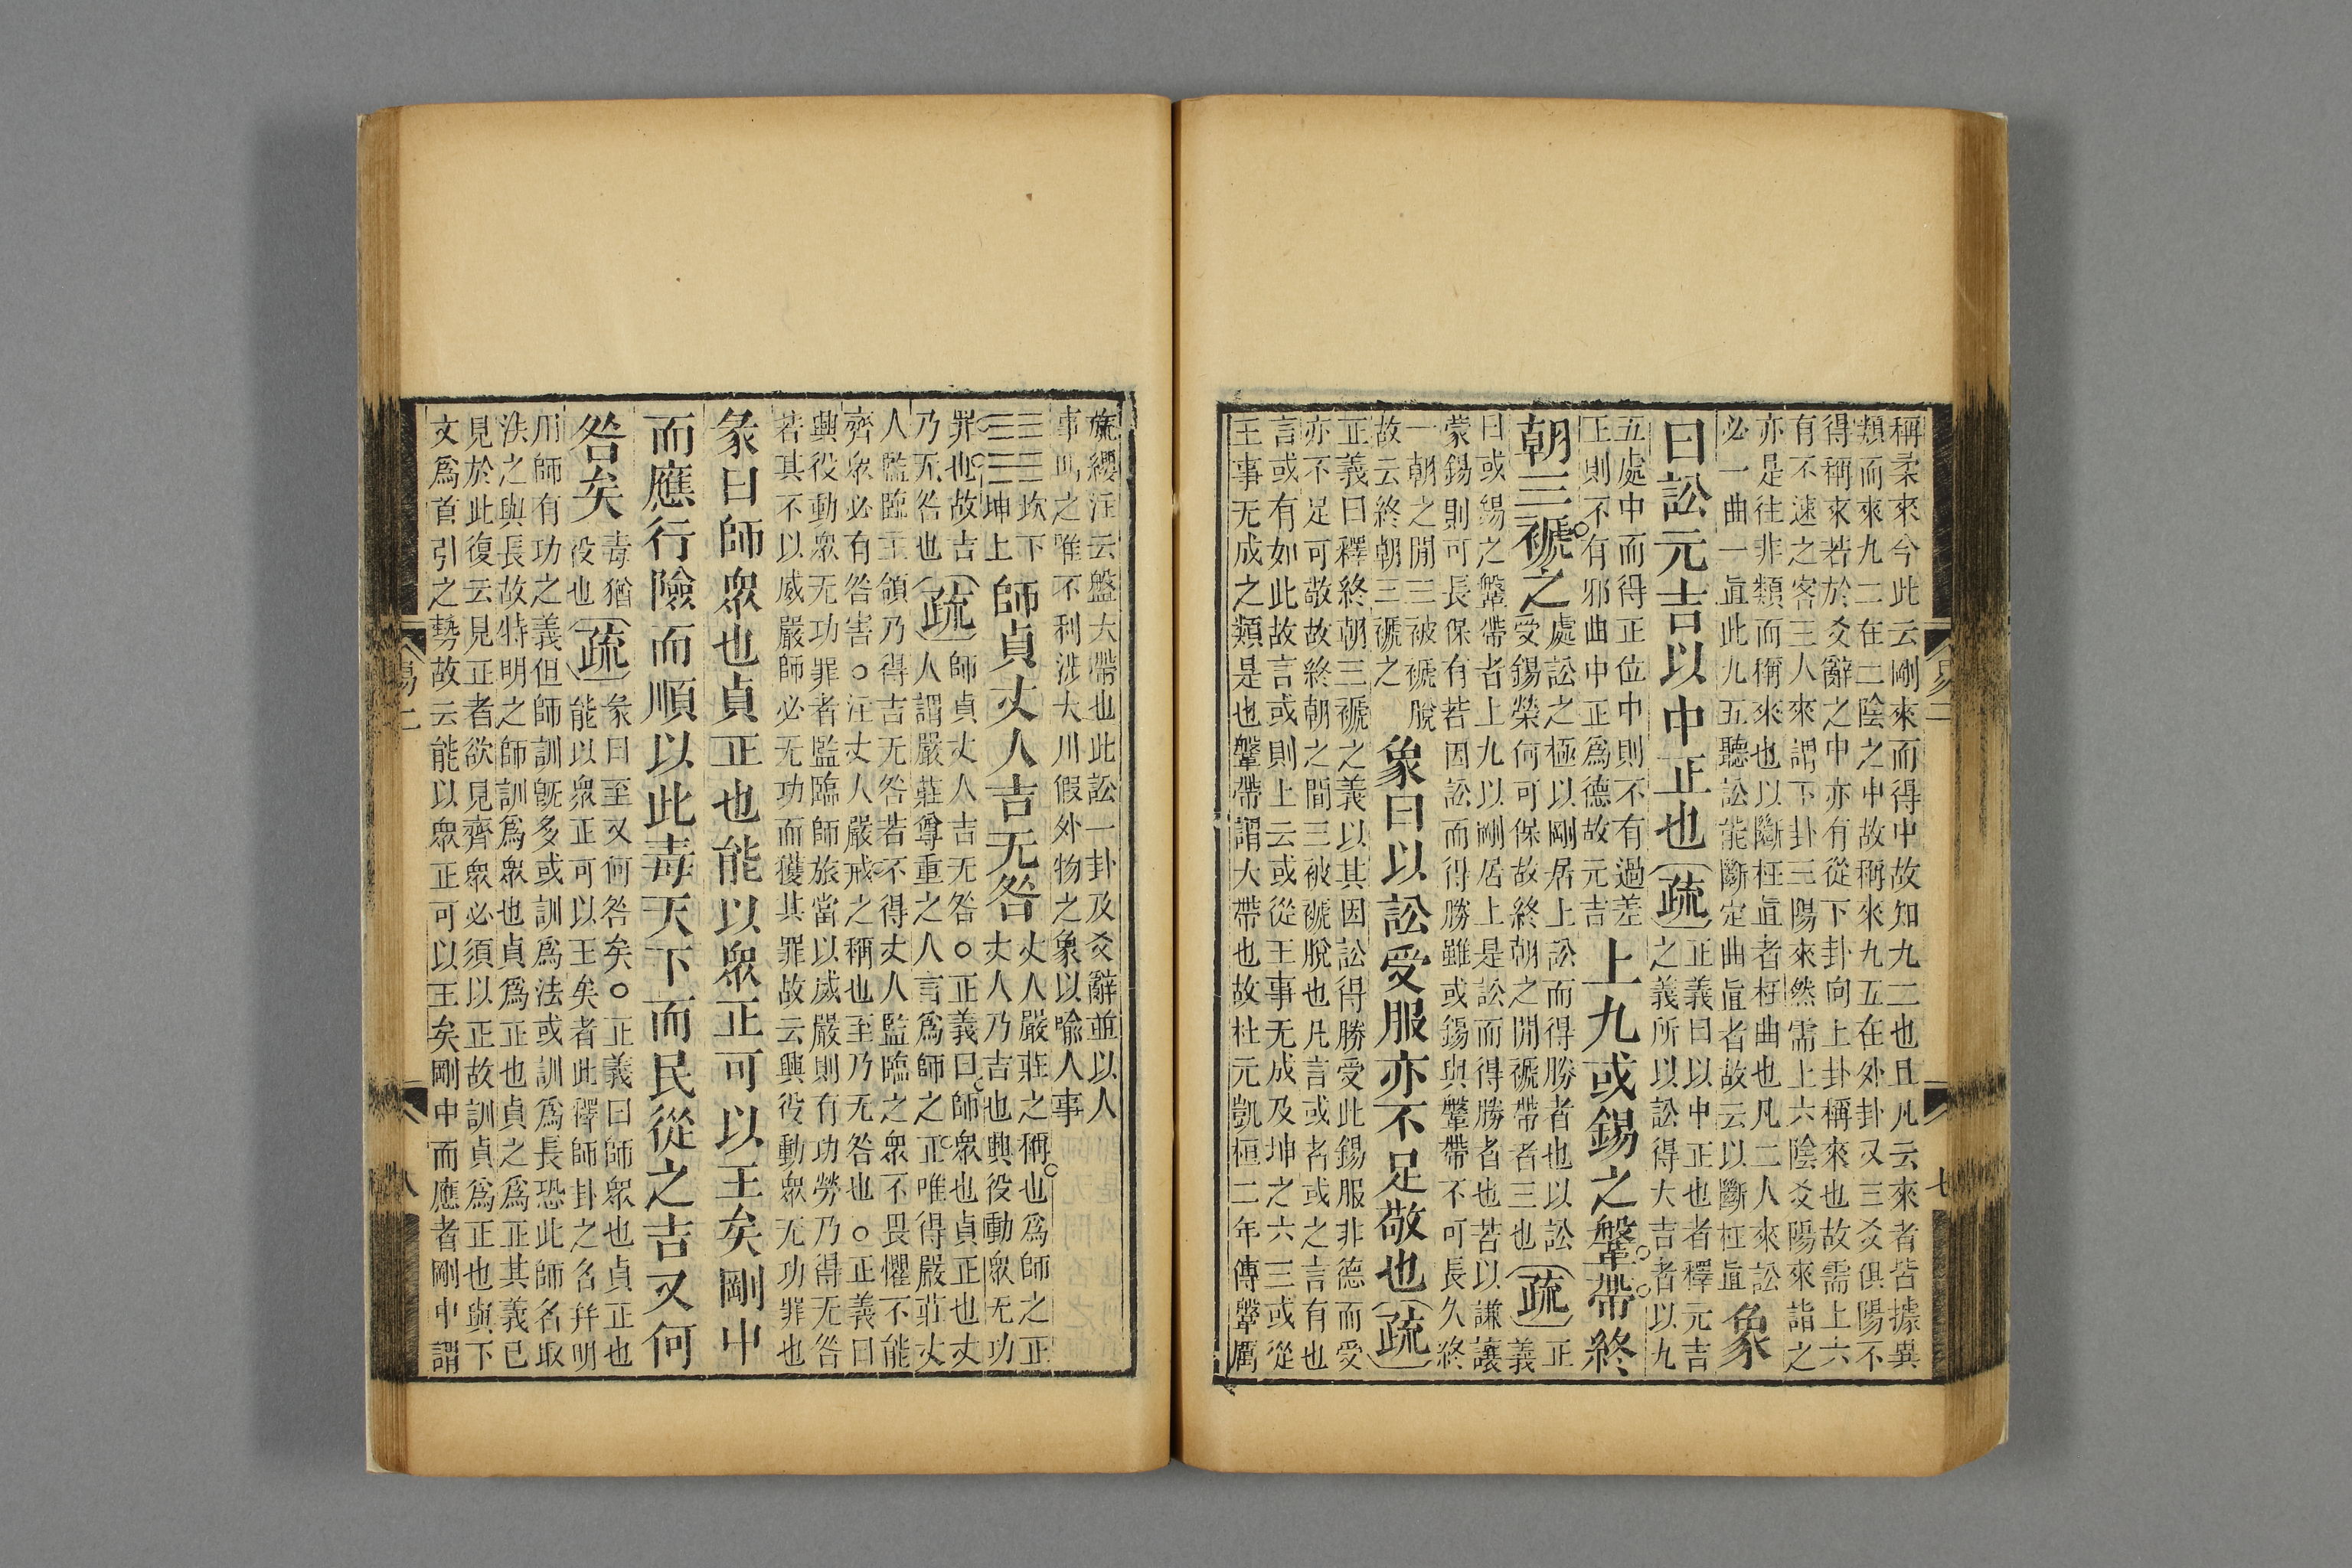 稱柔來今此云剛來而得中故知九二也且凡云來者皆據異
類而來九二在二陰之中故稱來九五在外卦又三爻俱陽不
得稱來若於爻辭之中亦有從下卦向上卦稱來也故需上六
有不速之客三人來謂下卦三陽來然需上六陰爻陽來詣之
亦是往非類而稱來也以斷枉直者枉曲也凡二人來訟
必一曲一直此九五聽訟能斷定曲直者故云以斷枉直
象
曰訟元吉以中正也
疏
正義曰以中正也者釋元吉
之義所以訟得大吉者以九
五處中而得正位中則不有過差
正則不有邪曲中正爲德故元吉
上九或錫之鞶帶終
朝三褫之
處訟之極以剛居上訟而得勝者也以訟
受錫榮何可保故終朝之閒褫帶者三也
疏
正
義
曰或錫之鞶帶者上九以剛居上是訟而得勝者也若以謙讓
蒙錫則可長保有若因訟而得勝雖或錫與鞶帶不可長久終
一朝之閒三被褫脫
故云終朝三褫之
象曰以訟受服亦不足敬也
疏
正義曰釋終朝三褫之義以其因訟得勝受此錫服非德而受
亦不足可敬故終朝之間三被褫脫也凡言或者或之言有也
言或有如此故言或則上云或從王事无成及坤之六三或從
王事无成之類是也鞶帶謂大帶也故杜元凱桓二年傳鞶厲
易二
七
旒纓注云盤大帶也此訟一卦及爻辭並以人
事明之唯不利涉大川假外物之象以喻人事
坎下
坤上
師貞丈人吉无咎
丈人嚴莊之稱也爲師之正
丈人乃吉也興役動眾无功
罪也故吉
乃无咎也
疏
師貞丈人吉无咎○正義曰師眾也貞正也丈
人謂嚴莊尊重之人言爲師之正唯得嚴莊丈
人監臨主領乃得吉无咎若不得丈人監臨之眾不畏懼不能
齊眾必有咎害○注丈人嚴戒之稱也至乃无咎也○正義曰
興役動眾无功罪者監臨師旅當以威嚴則有功勞乃得无咎
若其不以威嚴師必无功而獲其罪故云興役動眾无功罪也
彖曰師眾也貞正也能以眾正可以王矣剛中
而應行險而順以此毒天下而民從之吉又何
咎矣
毒猶
役也
疏
彖曰至又何咎矣○正義曰師眾也貞正也
能以眾正可以王矣者此釋師卦之名并明
用師有功之義但師訓旣多或訓爲法或訓爲長恐此師名取
法之與長故特明之師訓爲眾也貞爲正也貞之爲正其義已
見於此復云見正者欲見齊眾必須以正故訓貞爲正也與下
文爲首引之勢故云能以眾正可以王矣剛中而應者剛中謂
易二
八